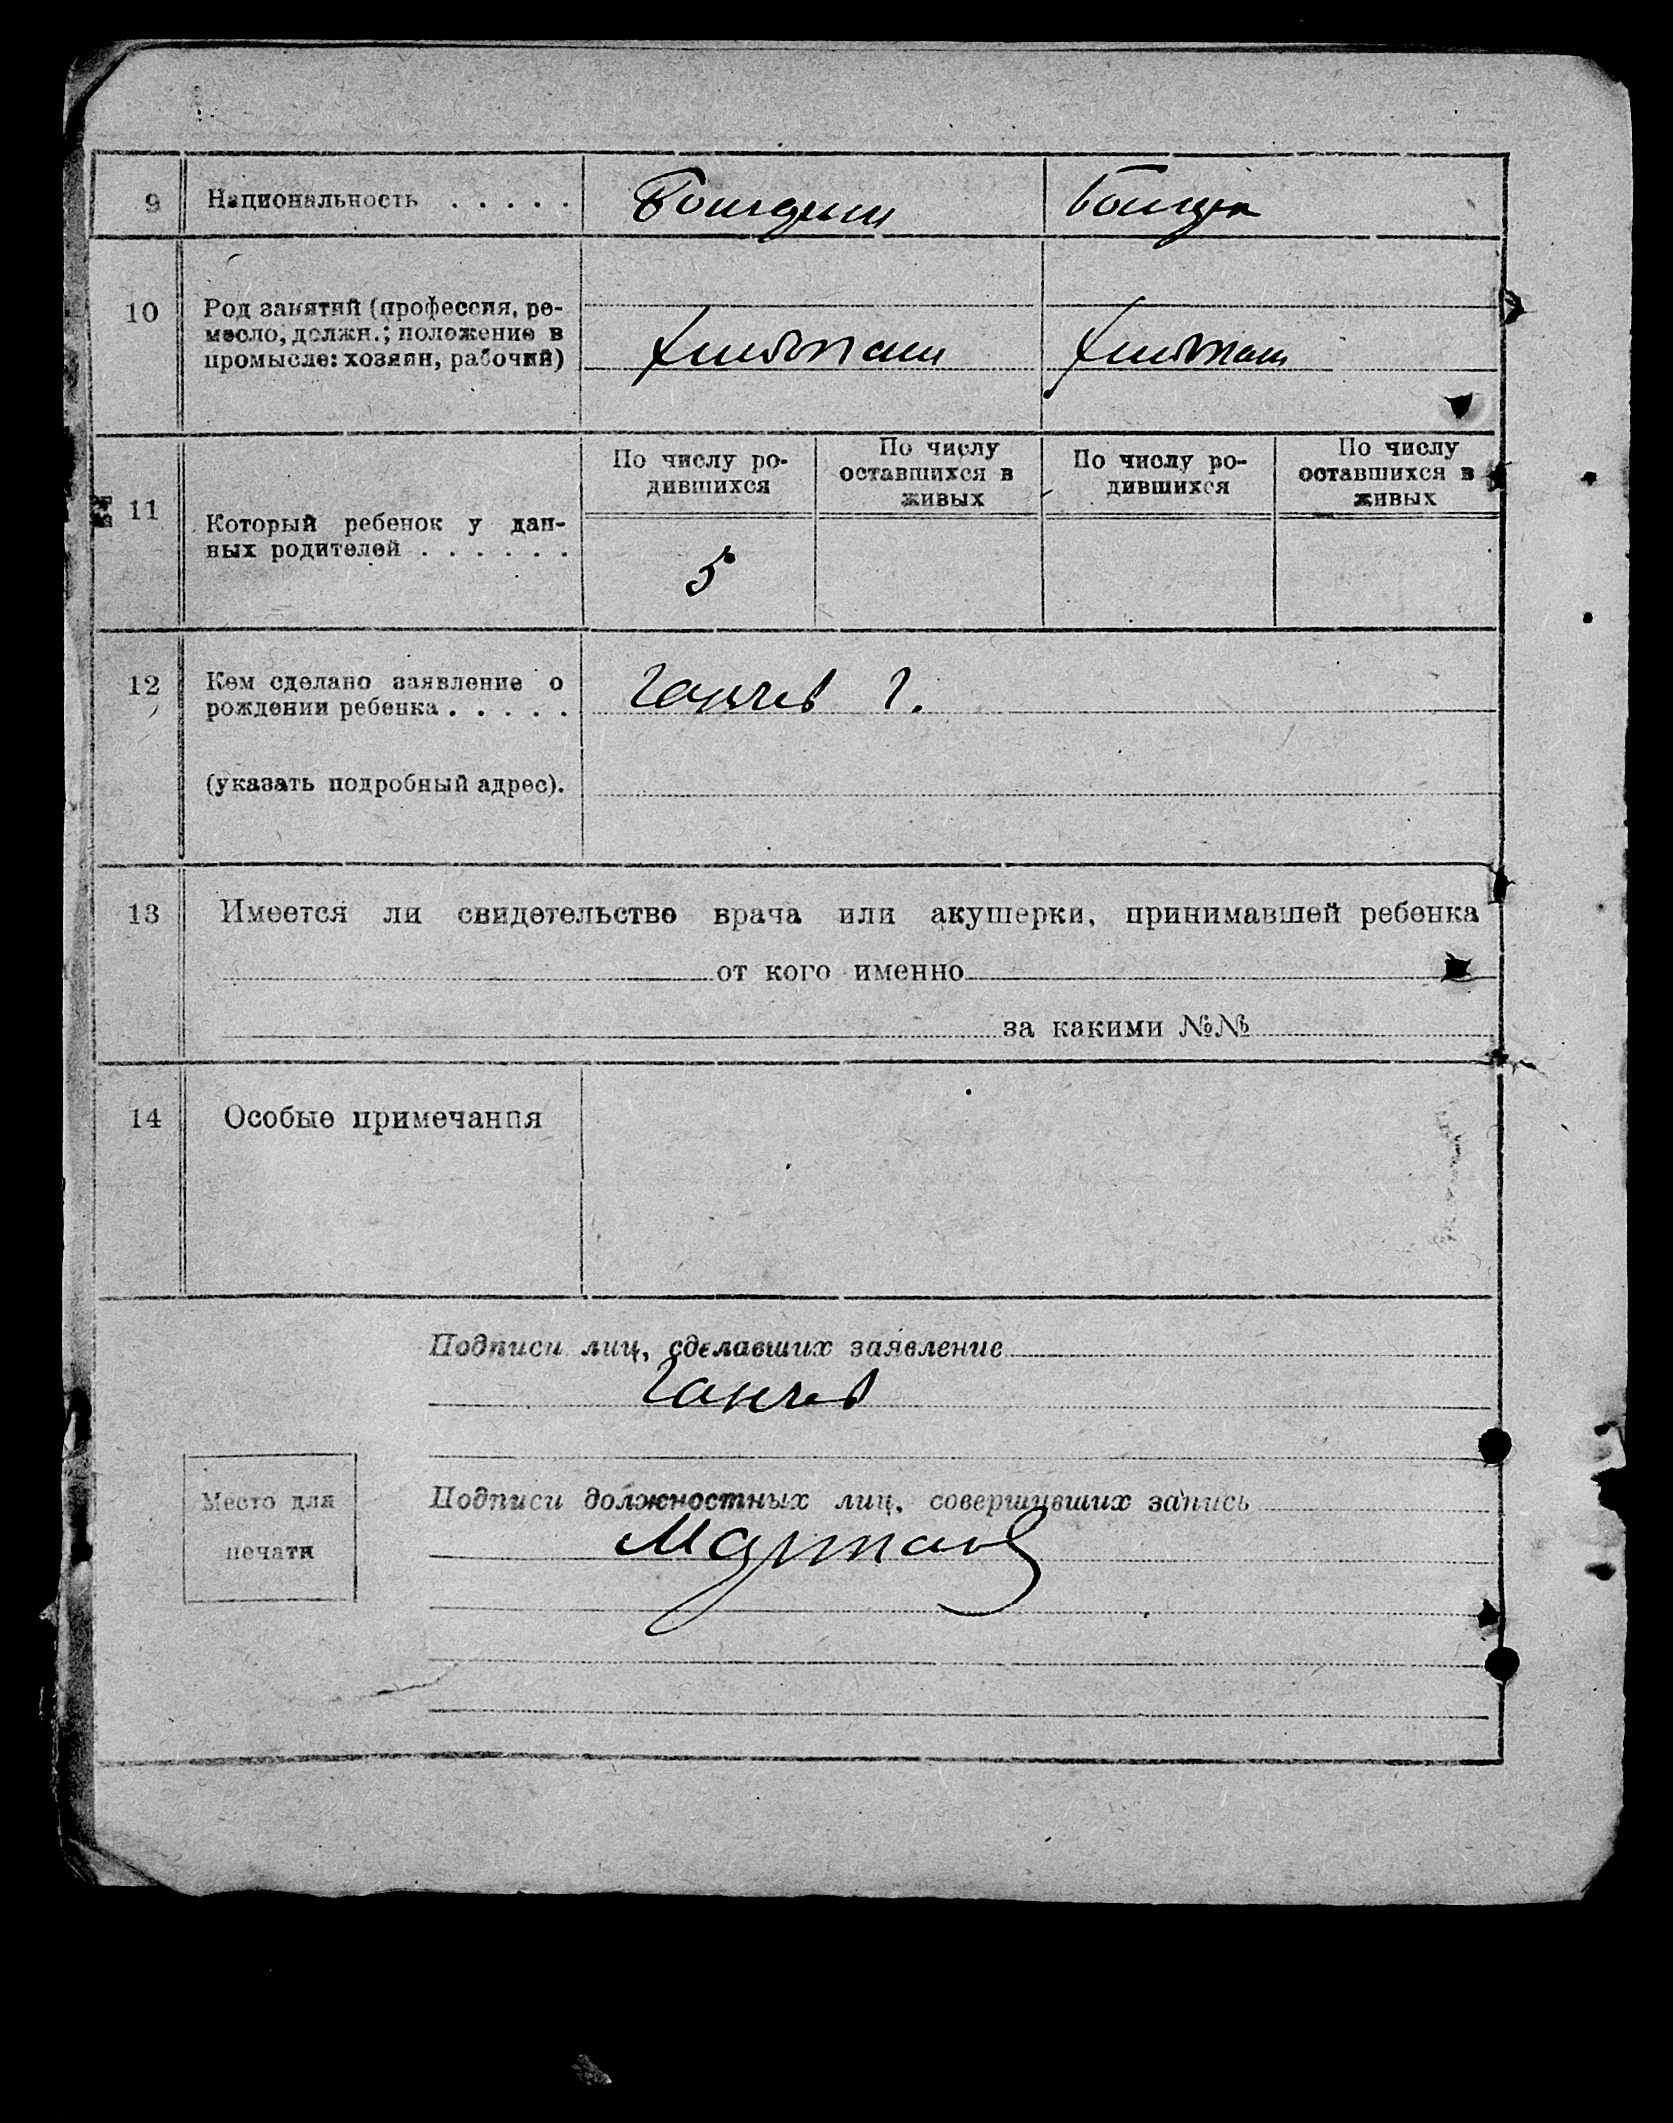 9 Национальность . . . . . Болгарин Болгар
10 Род занятий (профессия, ре-
месло, должн.; положение в
промысле: хозяин, рабочий)
Хлебопаш Хлебопаш
11 Который ребенок у дан-
ных родителей . . . . . .
По числу ро-
дившихся
По числу
оставшихся в
живых
По числу ро-
дившихся
По числу
оставшихся в
живых
5
12 Кем сделано заявление о
рождении ребенка . . . . .
Ганчев Г.
(указать подробный адрес).
13 Имеется ли свидетельство врача или акушерки, принимавшей ребенка
от кого именно
за какими №№
14 Особые примечания
Подписи лиц, сделавших заявление
Ганчев
Место для
печати
Подписи должностных лиц, совершивших запись